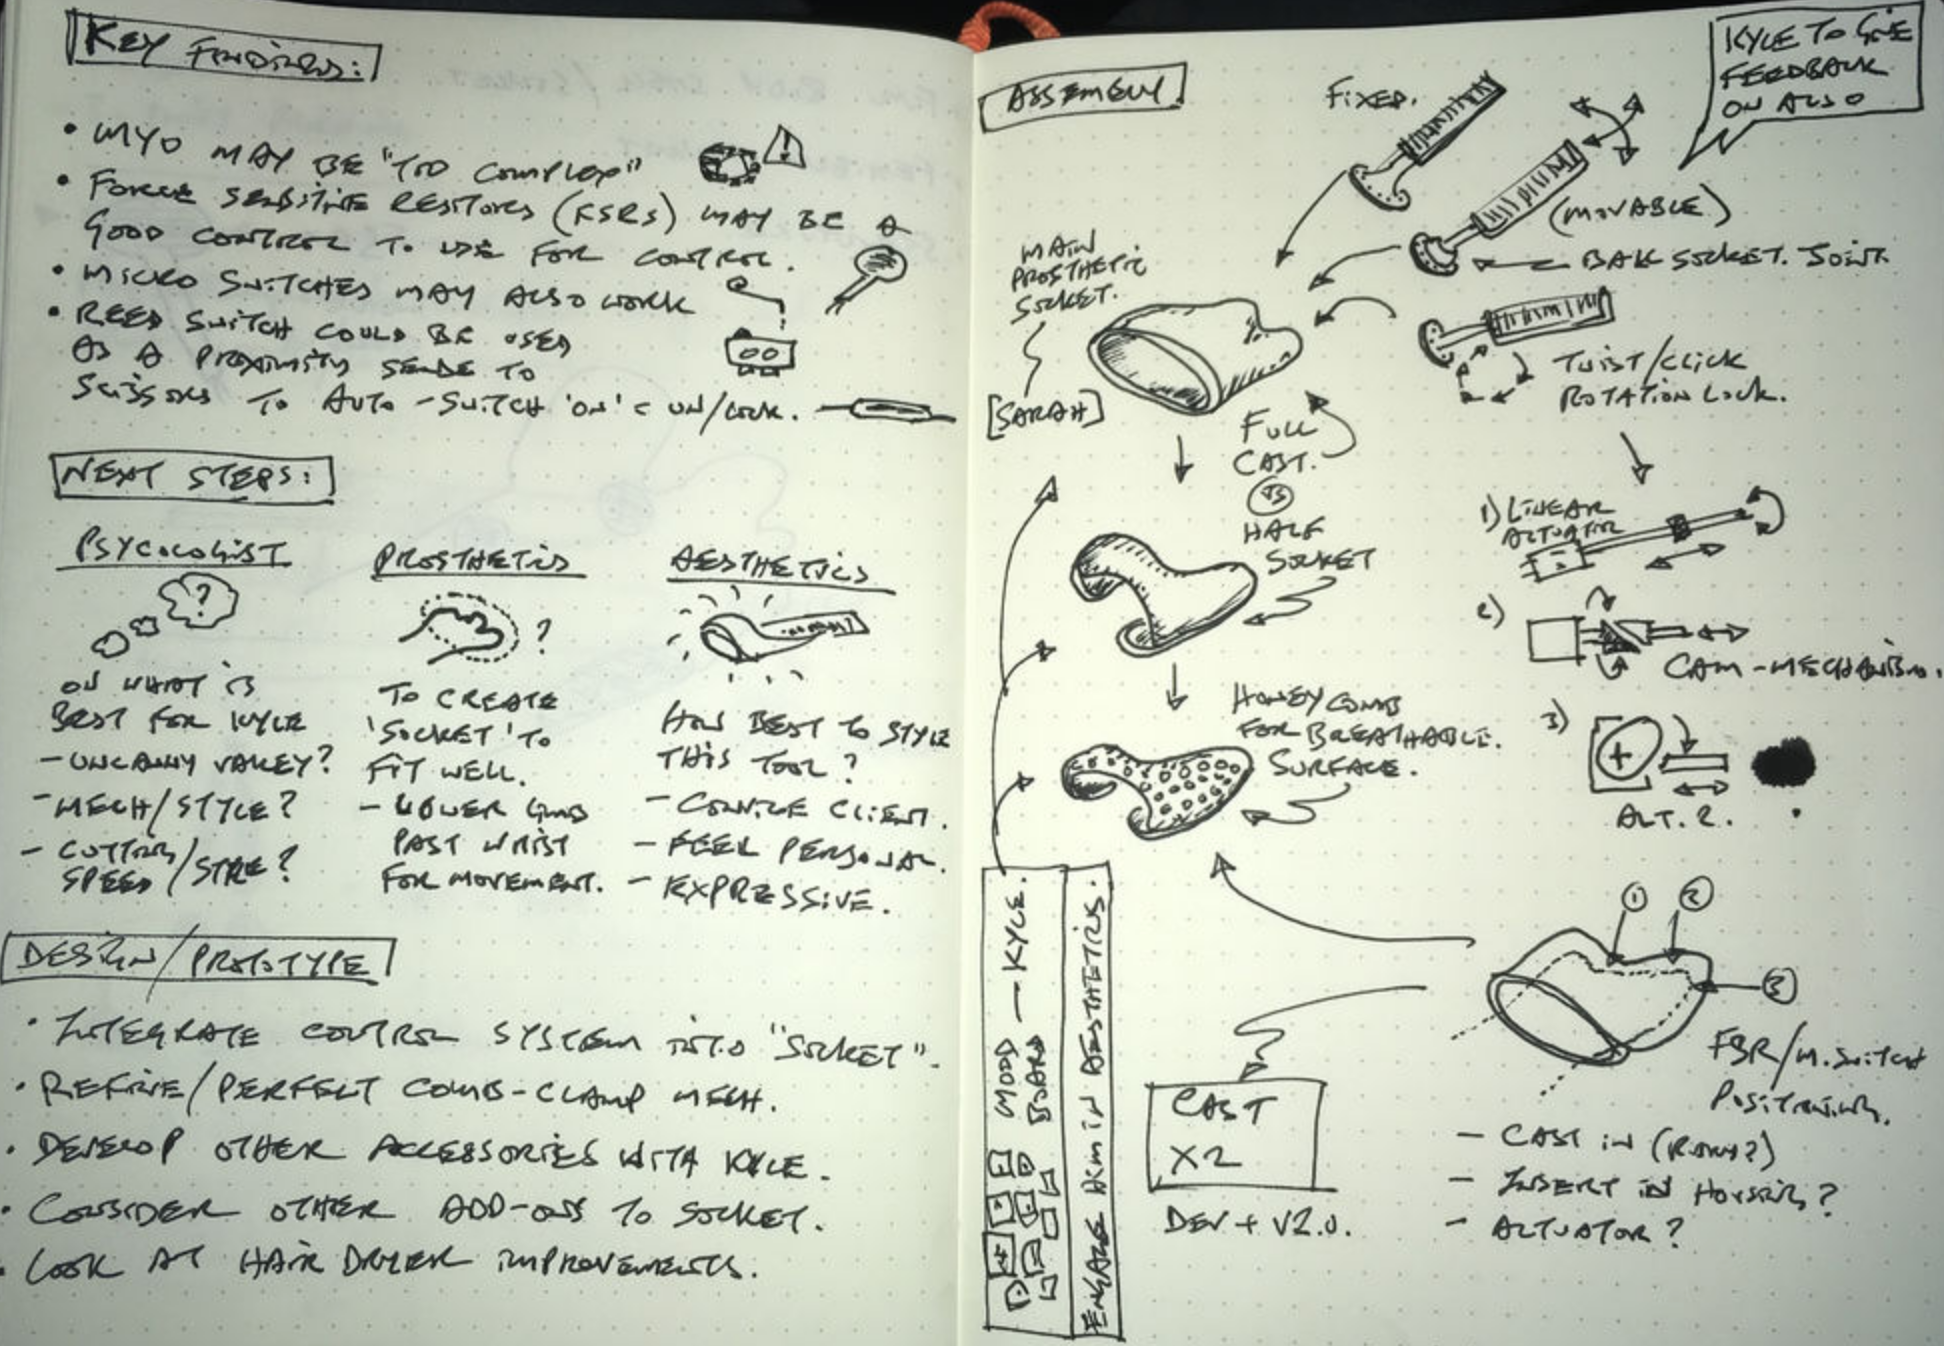 KEY FINDINGS:
• MYO MAY BE "TOO COMPLEX"
• FORCE SENSITIVE RESISTORS (FSRS) MAY BE A
GOOD CONTROL TO USE FOR CONTROL.
• MICRO SWITCHES MAY ALSO WORK
• REED SWITCH COULD BE USED
AS A PROXIMITY SENSE TO
SCISSORS TO AUTO-SWITCH 'ON' UN/LOCK.
NEXT STEPS:
PSYCOLOGIST
?
ON WHAT IS
BEST FOR KYLE
- UNCANNY VALLEY?
- MECH/STYLE?
- CUTTING
SPEED/STYLE?
PROSTHETICS
?
TO CREATE
'SOCKET' TO
FIT WELL.
- LOWER LIMB
PAST WRIST
FOR MOVEMENT.
AESTHETICS
HOW BEST TO STYLE
THIS TOOL?
- CLIENT.
- FEEL PERSONAL.
- EXPRESSIVE.
DESIGN/PROTOTYPE
• INTEGRATE CONTROL SYSTEM INTO "SOCKET".
• REFINE/PERFECT COMB-CLAMP MECH.
• DEVELOP OTHER ACCESSORIES WITH KYLE.
• CONSIDER OTHER ADD-ONS TO SOCKET.
• LOOK AT HAIR DRYER IMPROVEMENTS.
ASSEMBLY
FIXED.
KYLE TO GIVE
FEEDBACK
ON ALSO
(MOVABLE)
BALL SOCKET JOINT.
MAIN
PROSTHETIC
SOCKET.
[SARAH]
TWIST/CLICK
ROTATION LOCK.
FULL
CAST.
VS
HALF
SOCKET
1) LINEAR
ACTUATOR
2)
CAM-MECHANISM.
3)
ALT. 2.
HONEYCOMB
FOR BREATHABLE
SURFACE.
MOOD BOARD — KYLE.
ENGAGE AESTHETICS.
1 2
3
FSR/M.SWITCH
POSITIONING.
- CAST IN
- INSERT IN HOUSING?
- ACTUATOR?
CAST
X2
DEV + V2.0.